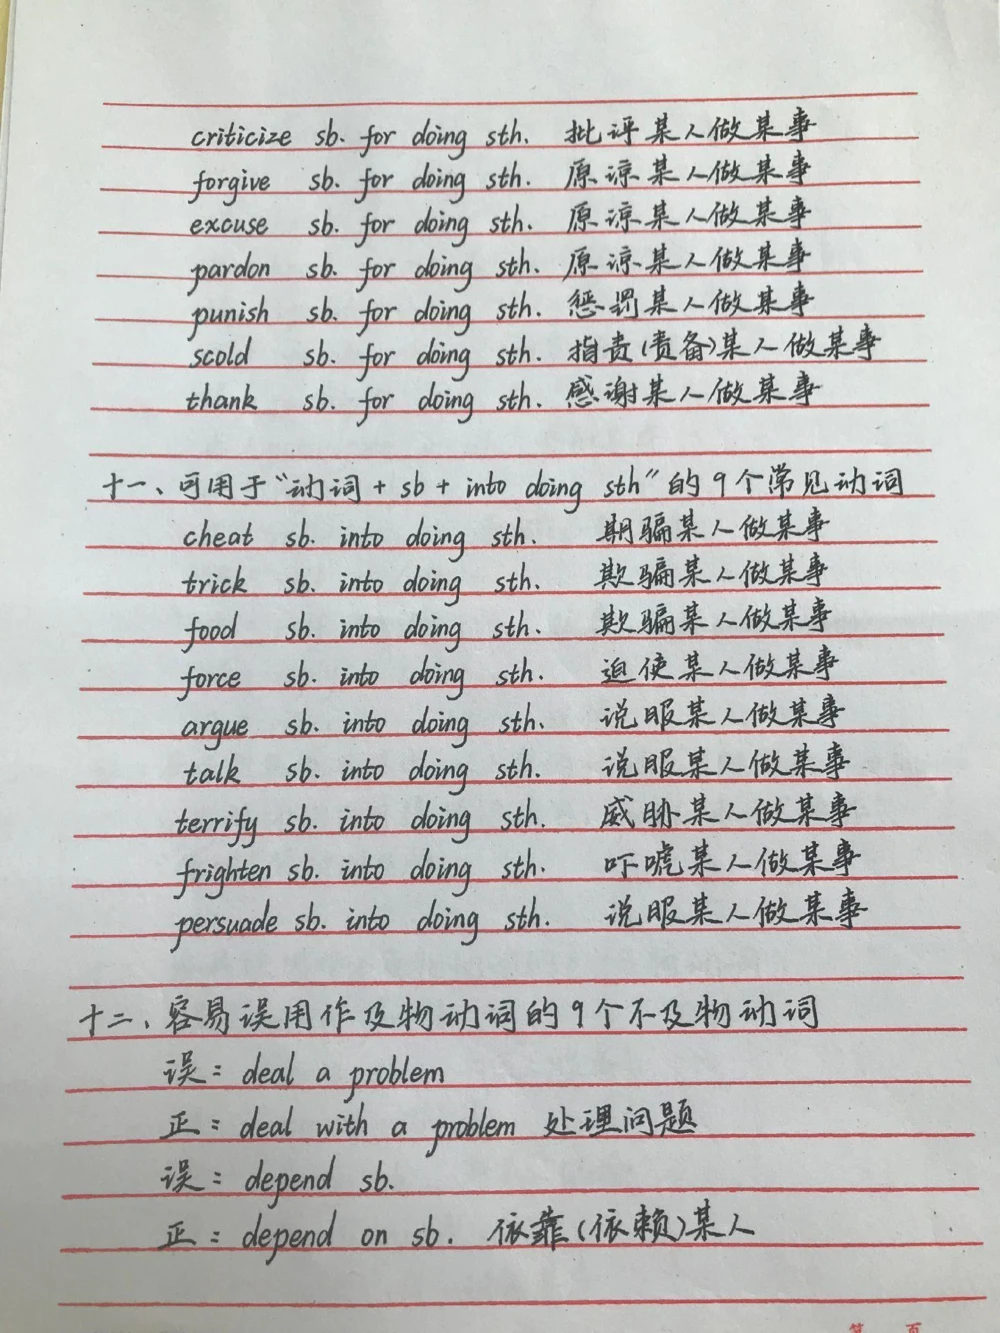 criticize sb. for doing sth. 批评某人做某事
forgive sb. for doing sth. 原谅某人做某事
excuse sb. for doing sth. 原谅某人做某事
pardon sb. for doing sth. 原谅某人做某事
punish sb. for doing sth. 惩罚某人做某事
scold sb. for doing sth. 指责(责备)某人做某事
thank sb. for doing sth. 感谢某人做某事
十一、可用于“动词+sb+into doing sth”的9个常见动词
cheat sb. into doing sth. 期骗某人做某事
trick sb. into doing sth. 欺骗某人做某事
food sb. into doing sth. 欺骗某人做某事
force sb. into doing sth. 迫使某人做某事
argue sb. into doing sth. 说服某人做某事
talk sb. into doing sth. 说服某人做某事
terrify sb. into doing sth. 威胁某人做某事
frighten sb. into doing sth. 吓唬某人做某事
persuade sb. into doing sth. 说服某人做某事
十二、容易误用作及物动词的9个不及物动词
误: deal a problem
正: deal with a problem 处理问题
误: depend sb.
正: depend on sb. 依靠(依赖)某人
第 页